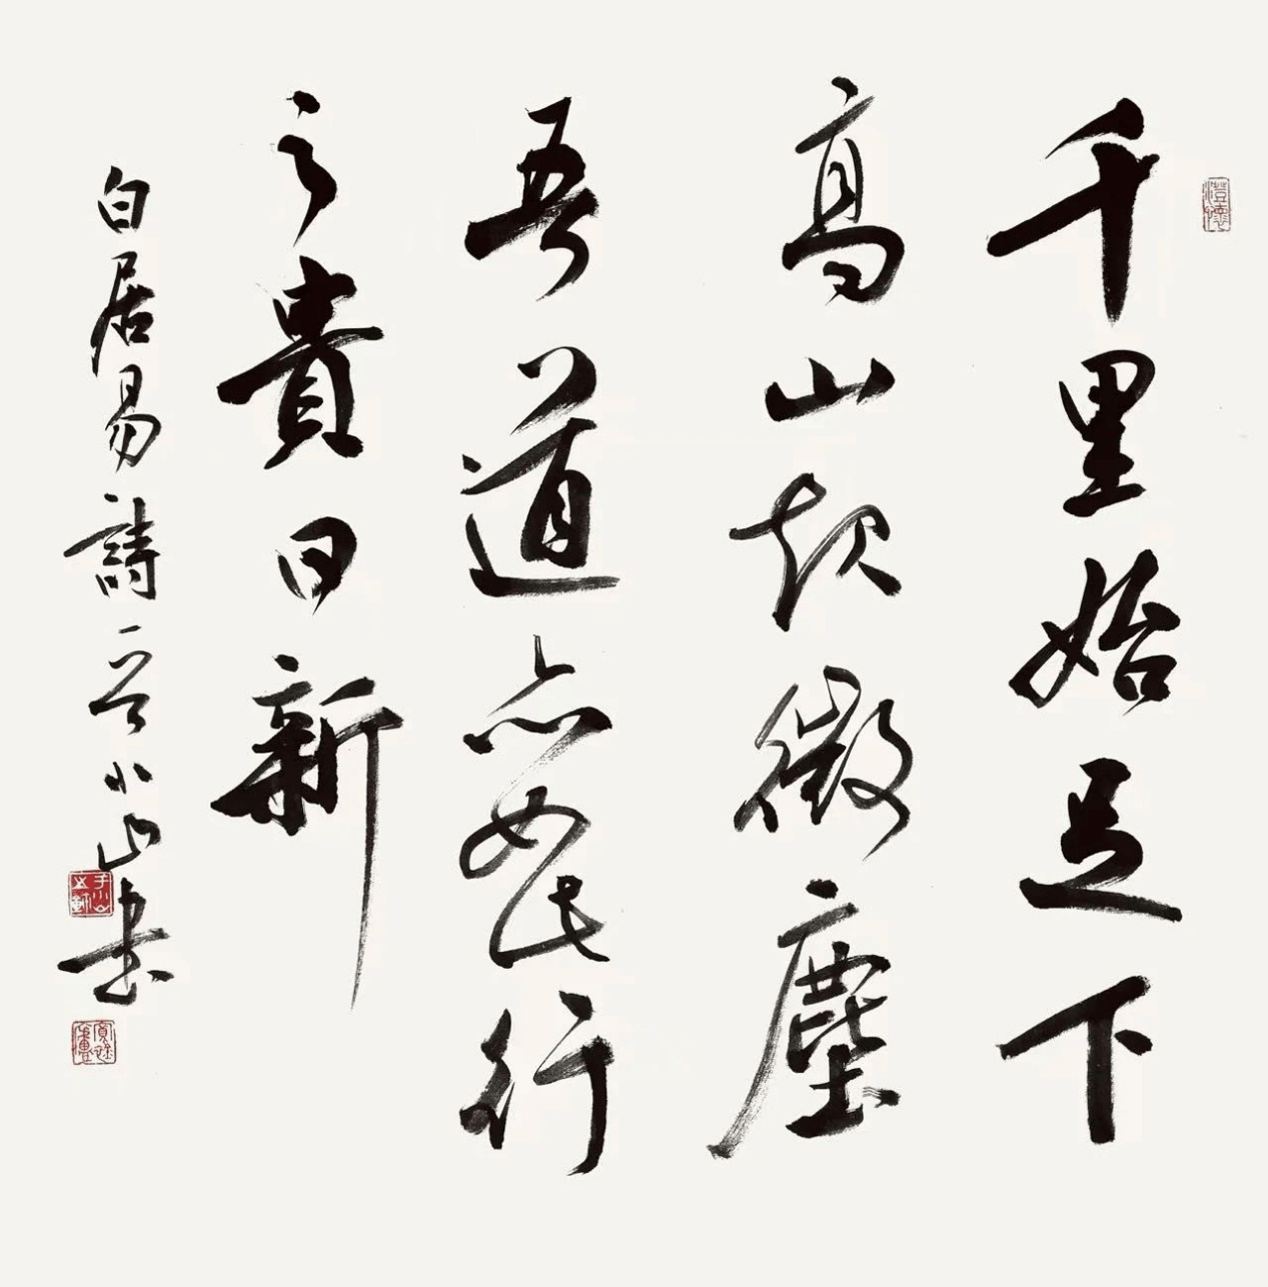 澄懷
千里始足下
高山起微塵
吾道亦如此行
之貴日新
白居易詩小山書